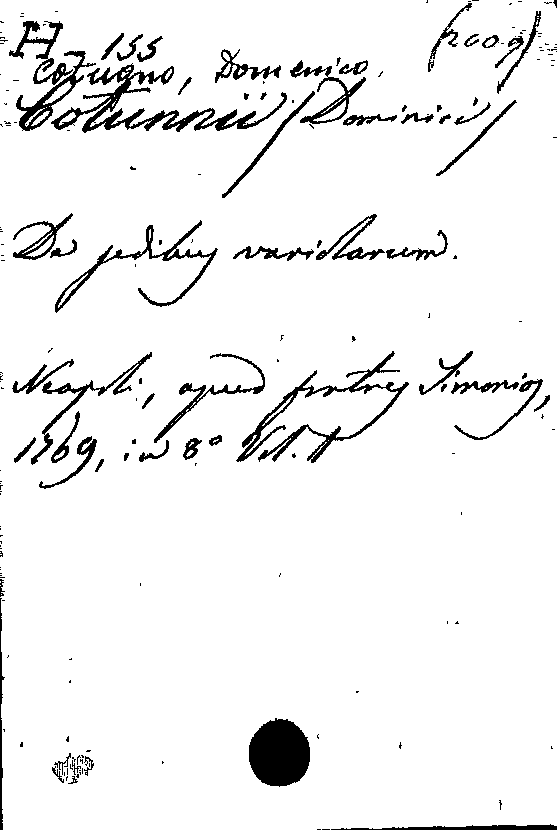 H 155 (2009)
Cotugno, Domenico.
Cotunnii / Dominici /
De sedibus variolarum.
Neapoli, apud fratres Simonios,
1769, in 8° Vol. 1